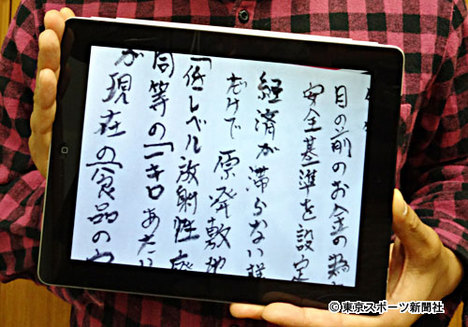 目の前のお金の
安全基準を設定
経済が滞らない
むけで 原発敷地
「低レベル放射性廃
同等の「一キロあた
が現在の食品の
©東京スポーツ新聞社